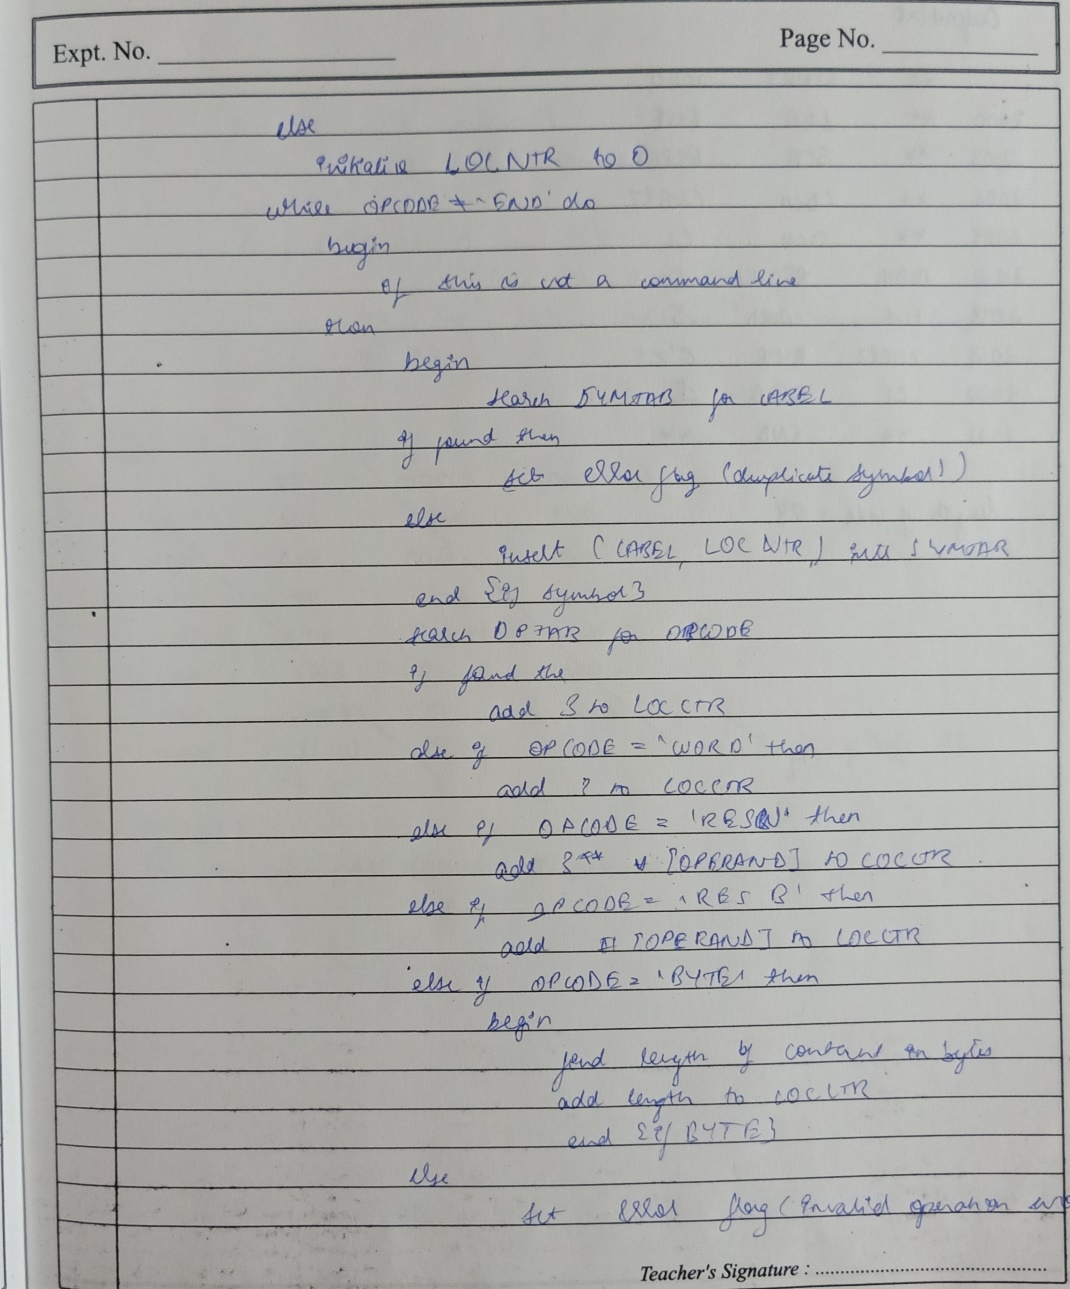 Expt. No.
Page No.
else
initialize LOCNTR to 0
while OPCODE ≠ 'END' do
begin
if this is not a command line
then
begin
search SYMTAB for LABEL
if found then
set error flag (duplicate symbol)
else
insert (LABEL, LOCNTR) into SYMTAB
end {if symbol}
search OPTAB for OPCODE
if found the
add 3 to LOCCTR
else if OPCODE = 'WORD' then
add 3 to LOCCTR
else if OPCODE = 'RESW' then
add 3 * [OPERAND] to LOCCTR
else if OPCODE = 'RESB' then
add [OPERAND] to LOCCTR
else if OPCODE = 'BYTE' then
begin
find length of constant in bytes
add length to LOCCTR
end {if BYTE}
else
set error flag (invalid operation
Teacher's Signature :